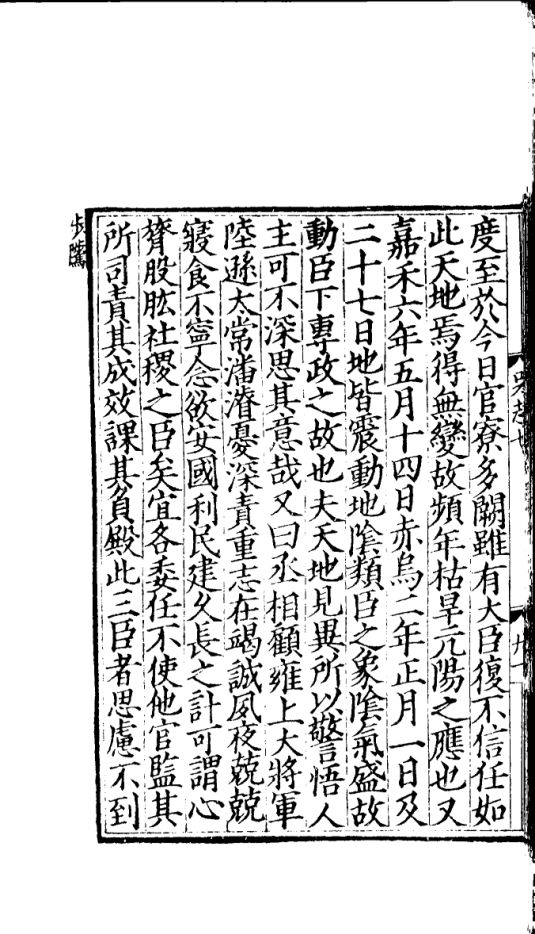 度至於今日官寮多闕雖有大臣復不信任如
此天地焉得無變故頻年枯旱亢陽之應也又
嘉禾六年五月十四日赤烏二年正月一日及
二十七日地皆震動地陰類臣之象陰氣盛故
動臣下專政之故也夫天地見異所以警悟人
主可不深思其意哉又曰丞相顧雍上大將軍
陸遜太常潘濬憂深責重志在竭誠夙夜兢兢
寢食不寧念欲安國利民建久長之計可謂心
膂股肱社稷之臣矣宜各委任不使他官監其
所司責其成效課其負殿此三臣者思慮不到
步騭